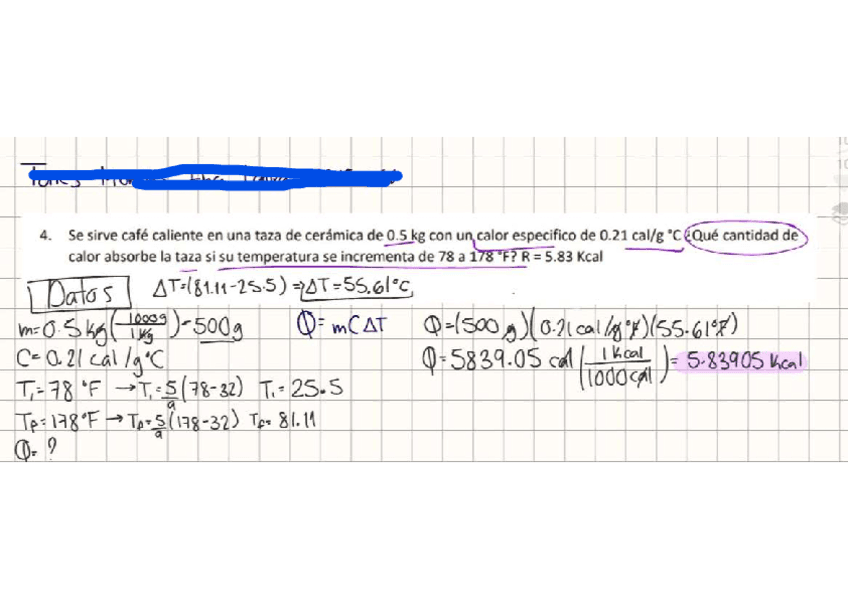 4. Se sirve café caliente en una taza de cerámica de 0.5 kg con un calor especifico de 0.21 cal/g °C ¿Qué cantidad de
calor absorbe la taza si su temperatura se incrementa de 78 a 178 °F? R = 5.83 Kcal
Datos ΔT=(81.11-25.5) ⇒ ΔT=55.61°C
m=0.5 kg(1000g/1 kg)=500g Q=mCΔT Q=(500 g)(0.21 cal/g°C)(55.61°C)
C=0.21 cal/g°C Q=5839.05 cal(1 Kcal/1000 cal)= 5.83905 kcal
Ti=78 °F →Ti=5/9(78-32) Ti=25.5
Tf=178°F →Tf=5/9(178-32) Tf=81.11
Q=?